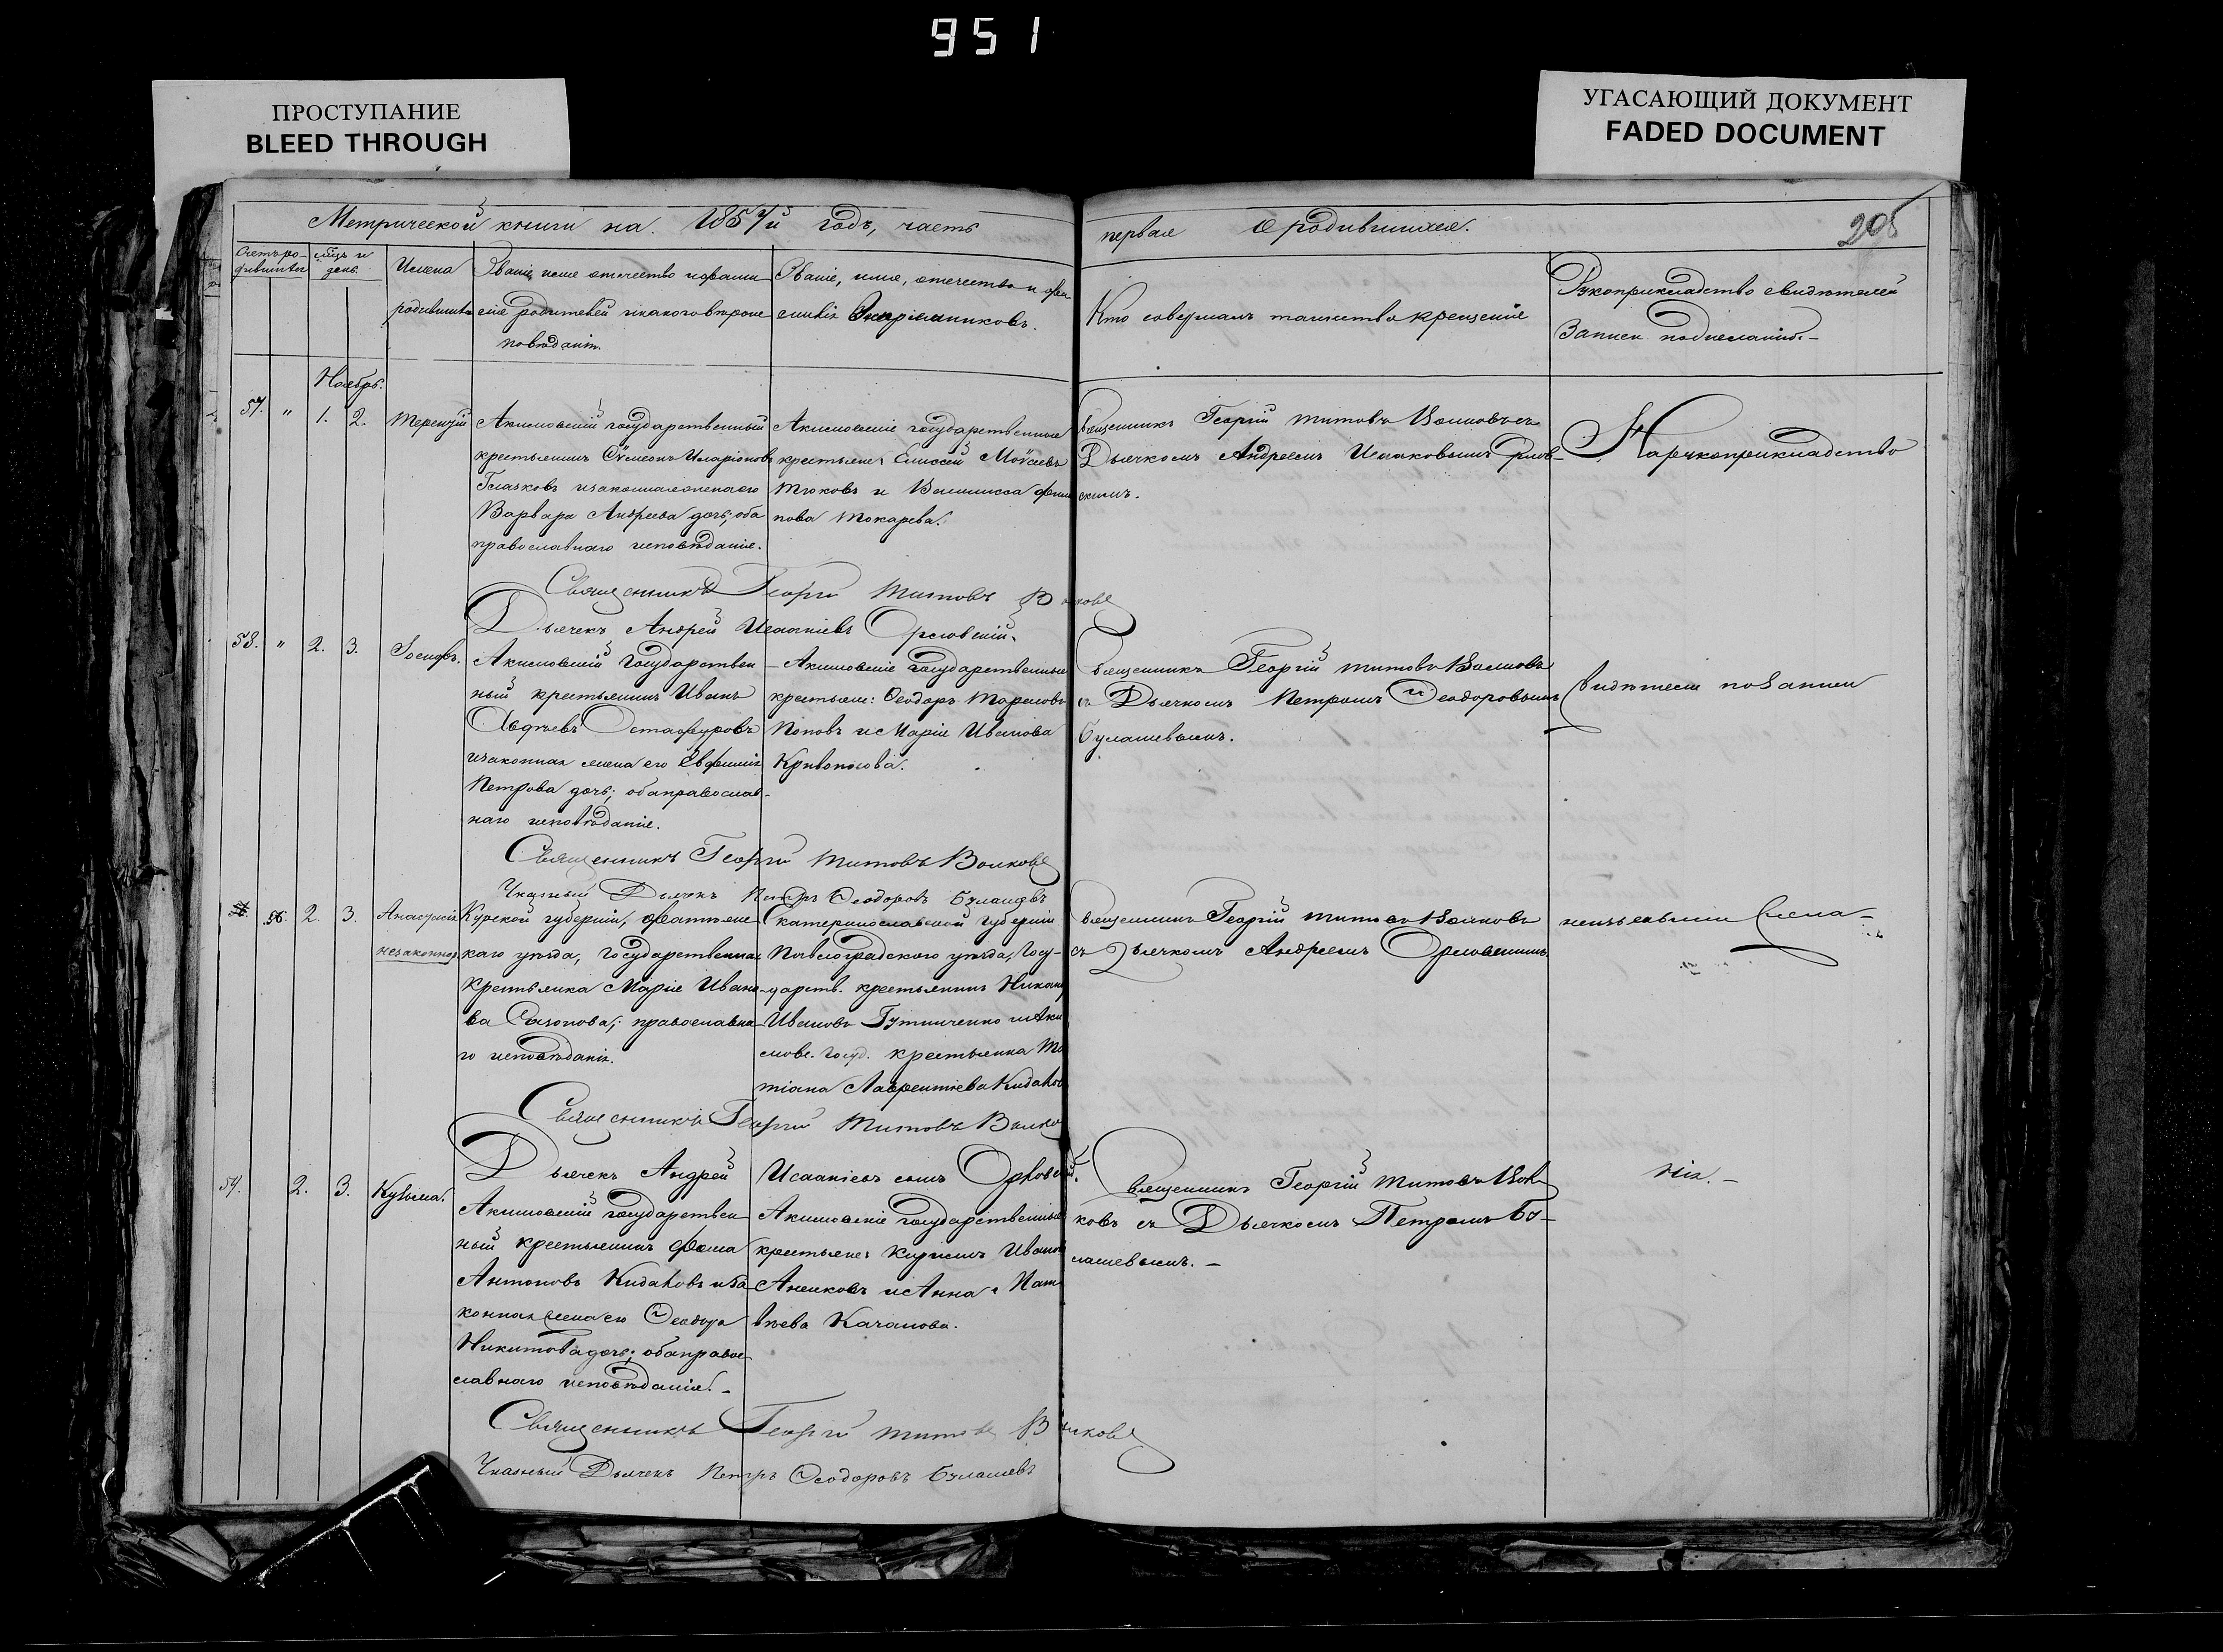 951
ПРОСТУПАНИЕ
BLEED THROUGH
УГАСАЮЩИЙ ДОКУМЕНТ
FADED DOCUMENT
Метрической книги на 1857й годъ, часть
первая о родившихся.
205
Счетъ ро-
дившихся
мѣцъ и
день.
Имена
родившихся
Званіе, имя, отчество и фами-
лія родителей и какого вѣроис-
повѣданія.
Званіе, имя, отчество и фа-
милія воспріемниковъ.
Кто совершалъ таинство крещенія
Рукоприкладство свидѣтелей
записи по желанію.
Ноябрь.
57. " 1. 2. Терентій
Акимовскій государственный
крестьянинъ Сѵмеонъ Иларіоновъ
Глазковъ и законная жена его
Варвара Андреева дочь; оба
православнаго исповѣданія.
Акимовскіе государственные
крестьяне: Елиссей Моѵсеевъ
Тюковъ и Василисса Филип
пова Токарева.
Священникъ Георгій Титовъ Волковъ съ
Дьячкомъ Андреемъ Исааковымъ Орлов-
скимъ.
На рукоприкладство
Священникъ Георгій Титовъ Волковъ
Дьячекъ Андрей Исаакіевъ Орловскій.
58. " 2. 3. Іосифъ.
Акимовскій государствен
ный крестьянинъ Иванъ
Авдѣевъ Остафуровъ
и законная жена его Евфимія
Петрова дочь; оба православ-
наго исповѣданія.
Акимовскіе государственные
крестьяне: Ѳеодоръ
Поповъ и Марія Иванова
Кривоносова.
Священникъ Георгій Титовъ Волковъ
съ Дьячкомъ Петромъ Ѳеодоровымъ
Булашевымъ.
свидѣтели по записи
Священникъ Георгій Титовъ Волковъ
Указный Дьячекъ Петръ Ѳеодоровъ Булашевъ
56. 2. 3. Анастасія
незаконнор.
Курской губерніи, Фатѣжс-
каго уѣзда, государственная
крестьянка Марія Ивано-
ва Сазонова; православна-
го исповѣданія.
Екатеринославской губерніи
Павлоградского уѣзда, госу-
дарств. крестьянинъ Никанр
Ивановъ Гутниченко и Аки
мовс. госуд. крестьянка Та
тіана Лаврентіева Кидалов
Священникъ Георгій Титовъ Волковъ
съ Дьячкомъ Андреемъ Орловскимъ.
неизъявили жела-
Священникъ Георгій Титовъ Волко
Дьячекъ Андрей Исаакіевъ сынъ Орловскій.
59. 2. 3. Кузьма.
Акимовскій государствен
ный крестьянинъ Ѳома
Антоновъ Кидаловъ и за
конная жена его Ѳеодора
Никитова дочь; оба правос-
лавнаго исповѣданія.
Акимовскіе государственные
крестьяне: Кирилъ Иванов
Аниковъ и Анна Мат
вѣева Качанова.
Священникъ Георгій Титовъ Вол
ковъ съ Дьячкомъ Петромъ Бу-
лашевымъ.
нія.
Священникъ Георгій Титовъ Волковъ
Указный Дьячекъ Петръ Ѳеодоровъ Булашевъ